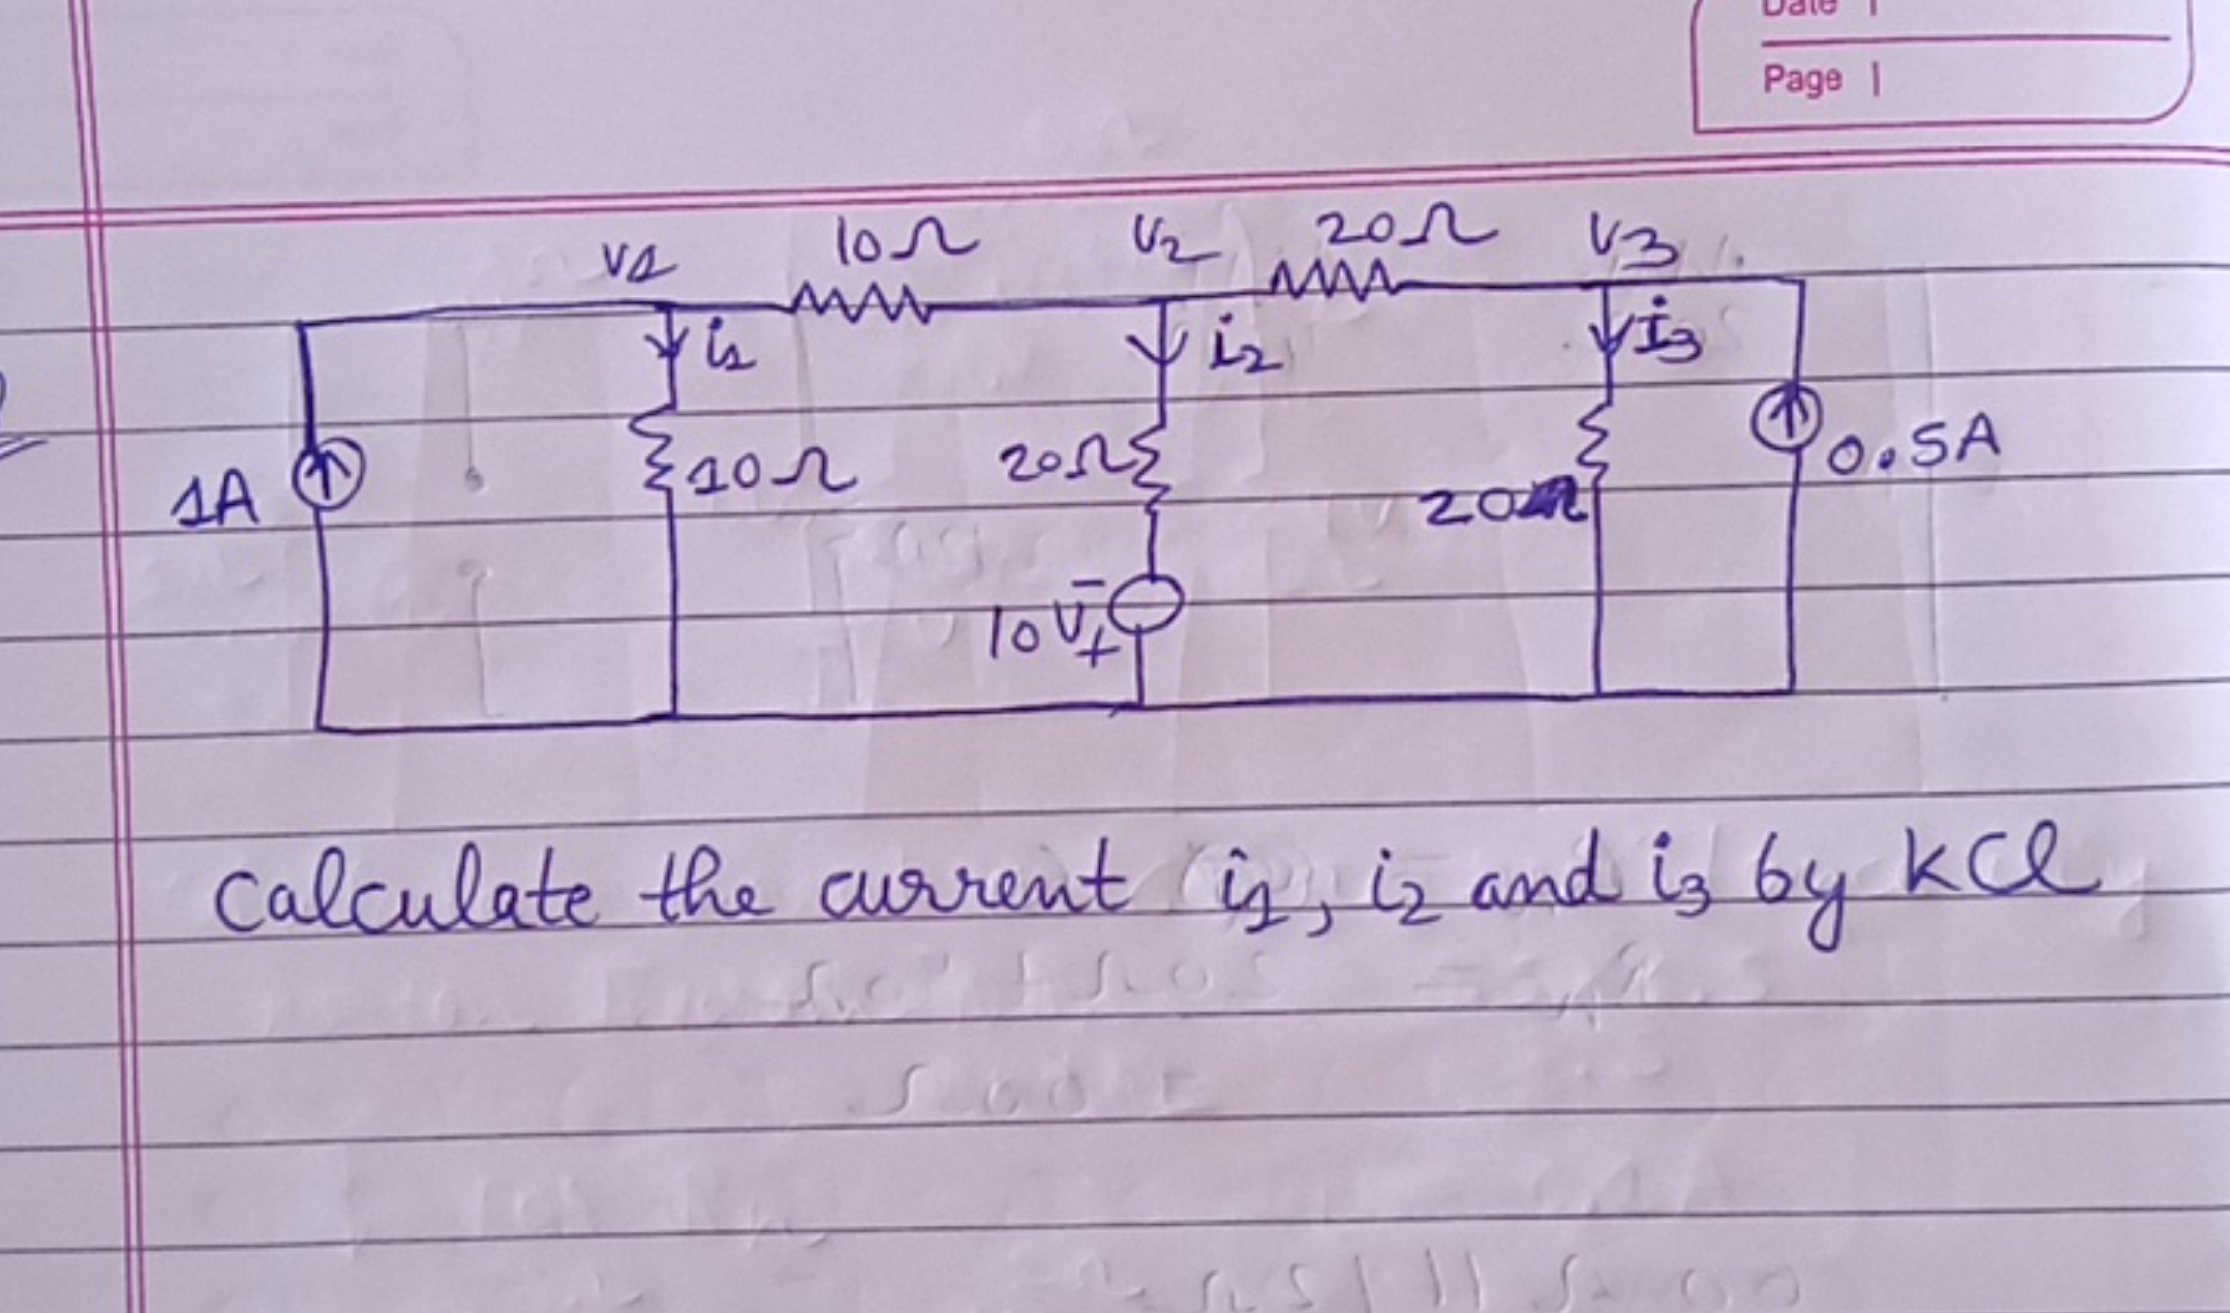 Date
Page
V1 10Ω V2 20Ω V3
i1 i2 i3
1A 10Ω 20Ω 20Ω 0.5A
10V - +
Calculate the current i1, i2 and i3 by KCl